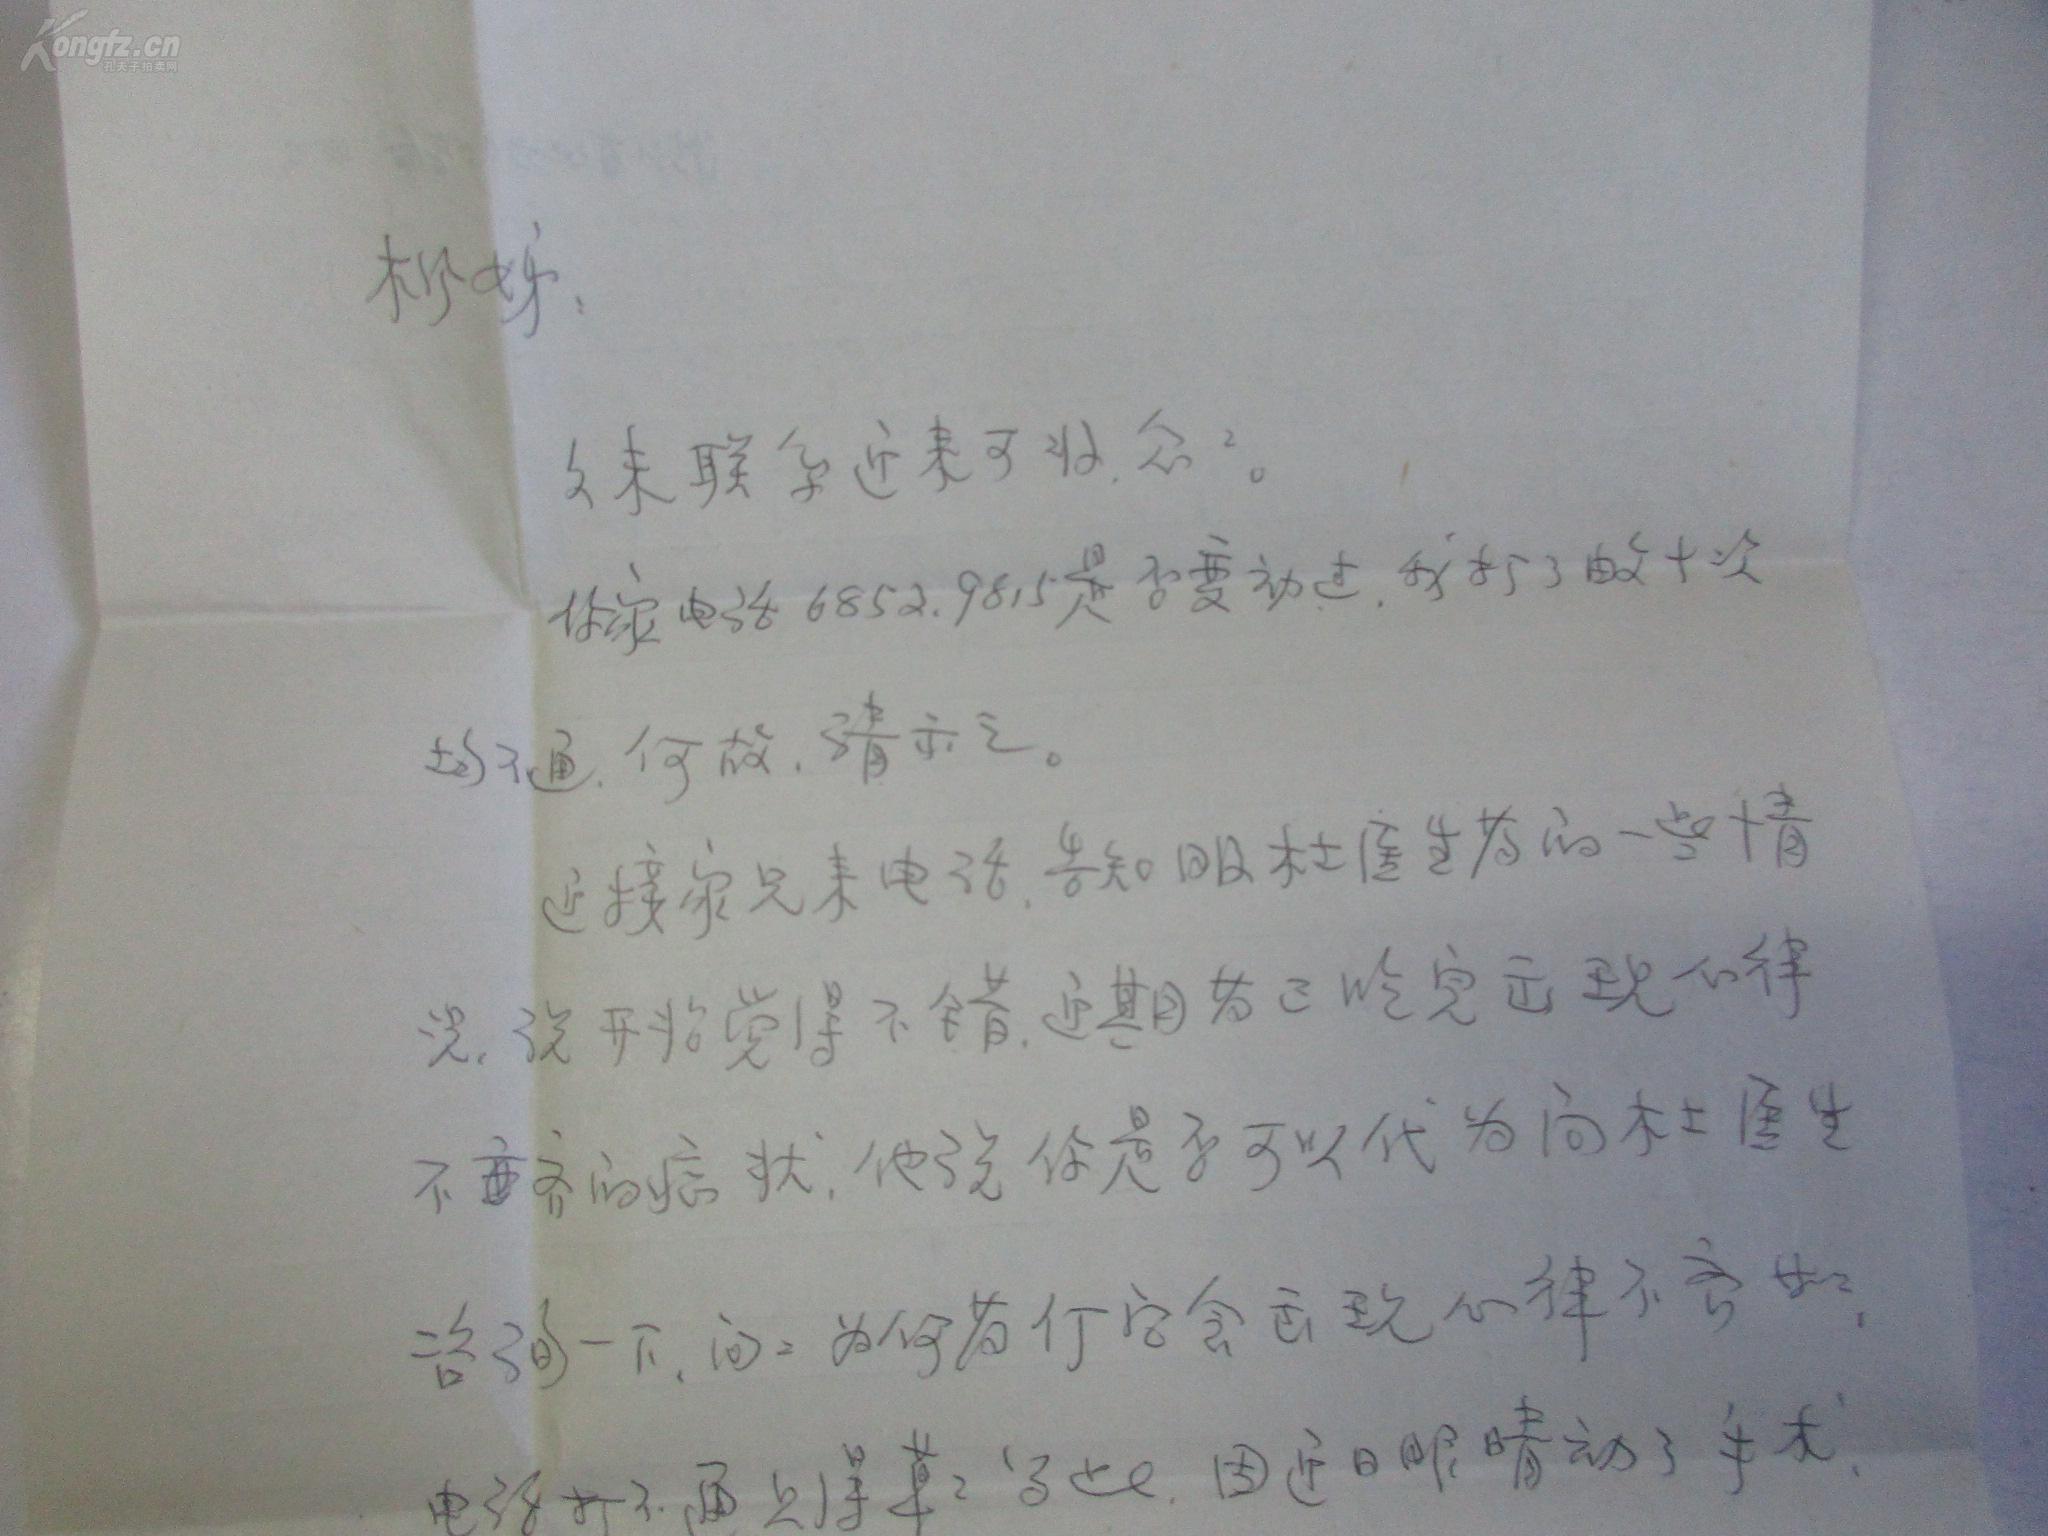 Kongfz.cn
孔夫子拍卖网
柳娣：
久未联系近来可好,念念。
你家电话6852.9815是否变动过,我打了数十次
均不通,何故,请示之。
近接家兄来电话,告知服杜医生药的一些情
况,说开始觉得不错,近期药已吃完出现心律
不整齐的病状,他说你是否可以代为向杜医生
咨询一下,问问为何药停它会出现心律不齐
电话打不通只得草草写此,因近日眼睛动了手术,